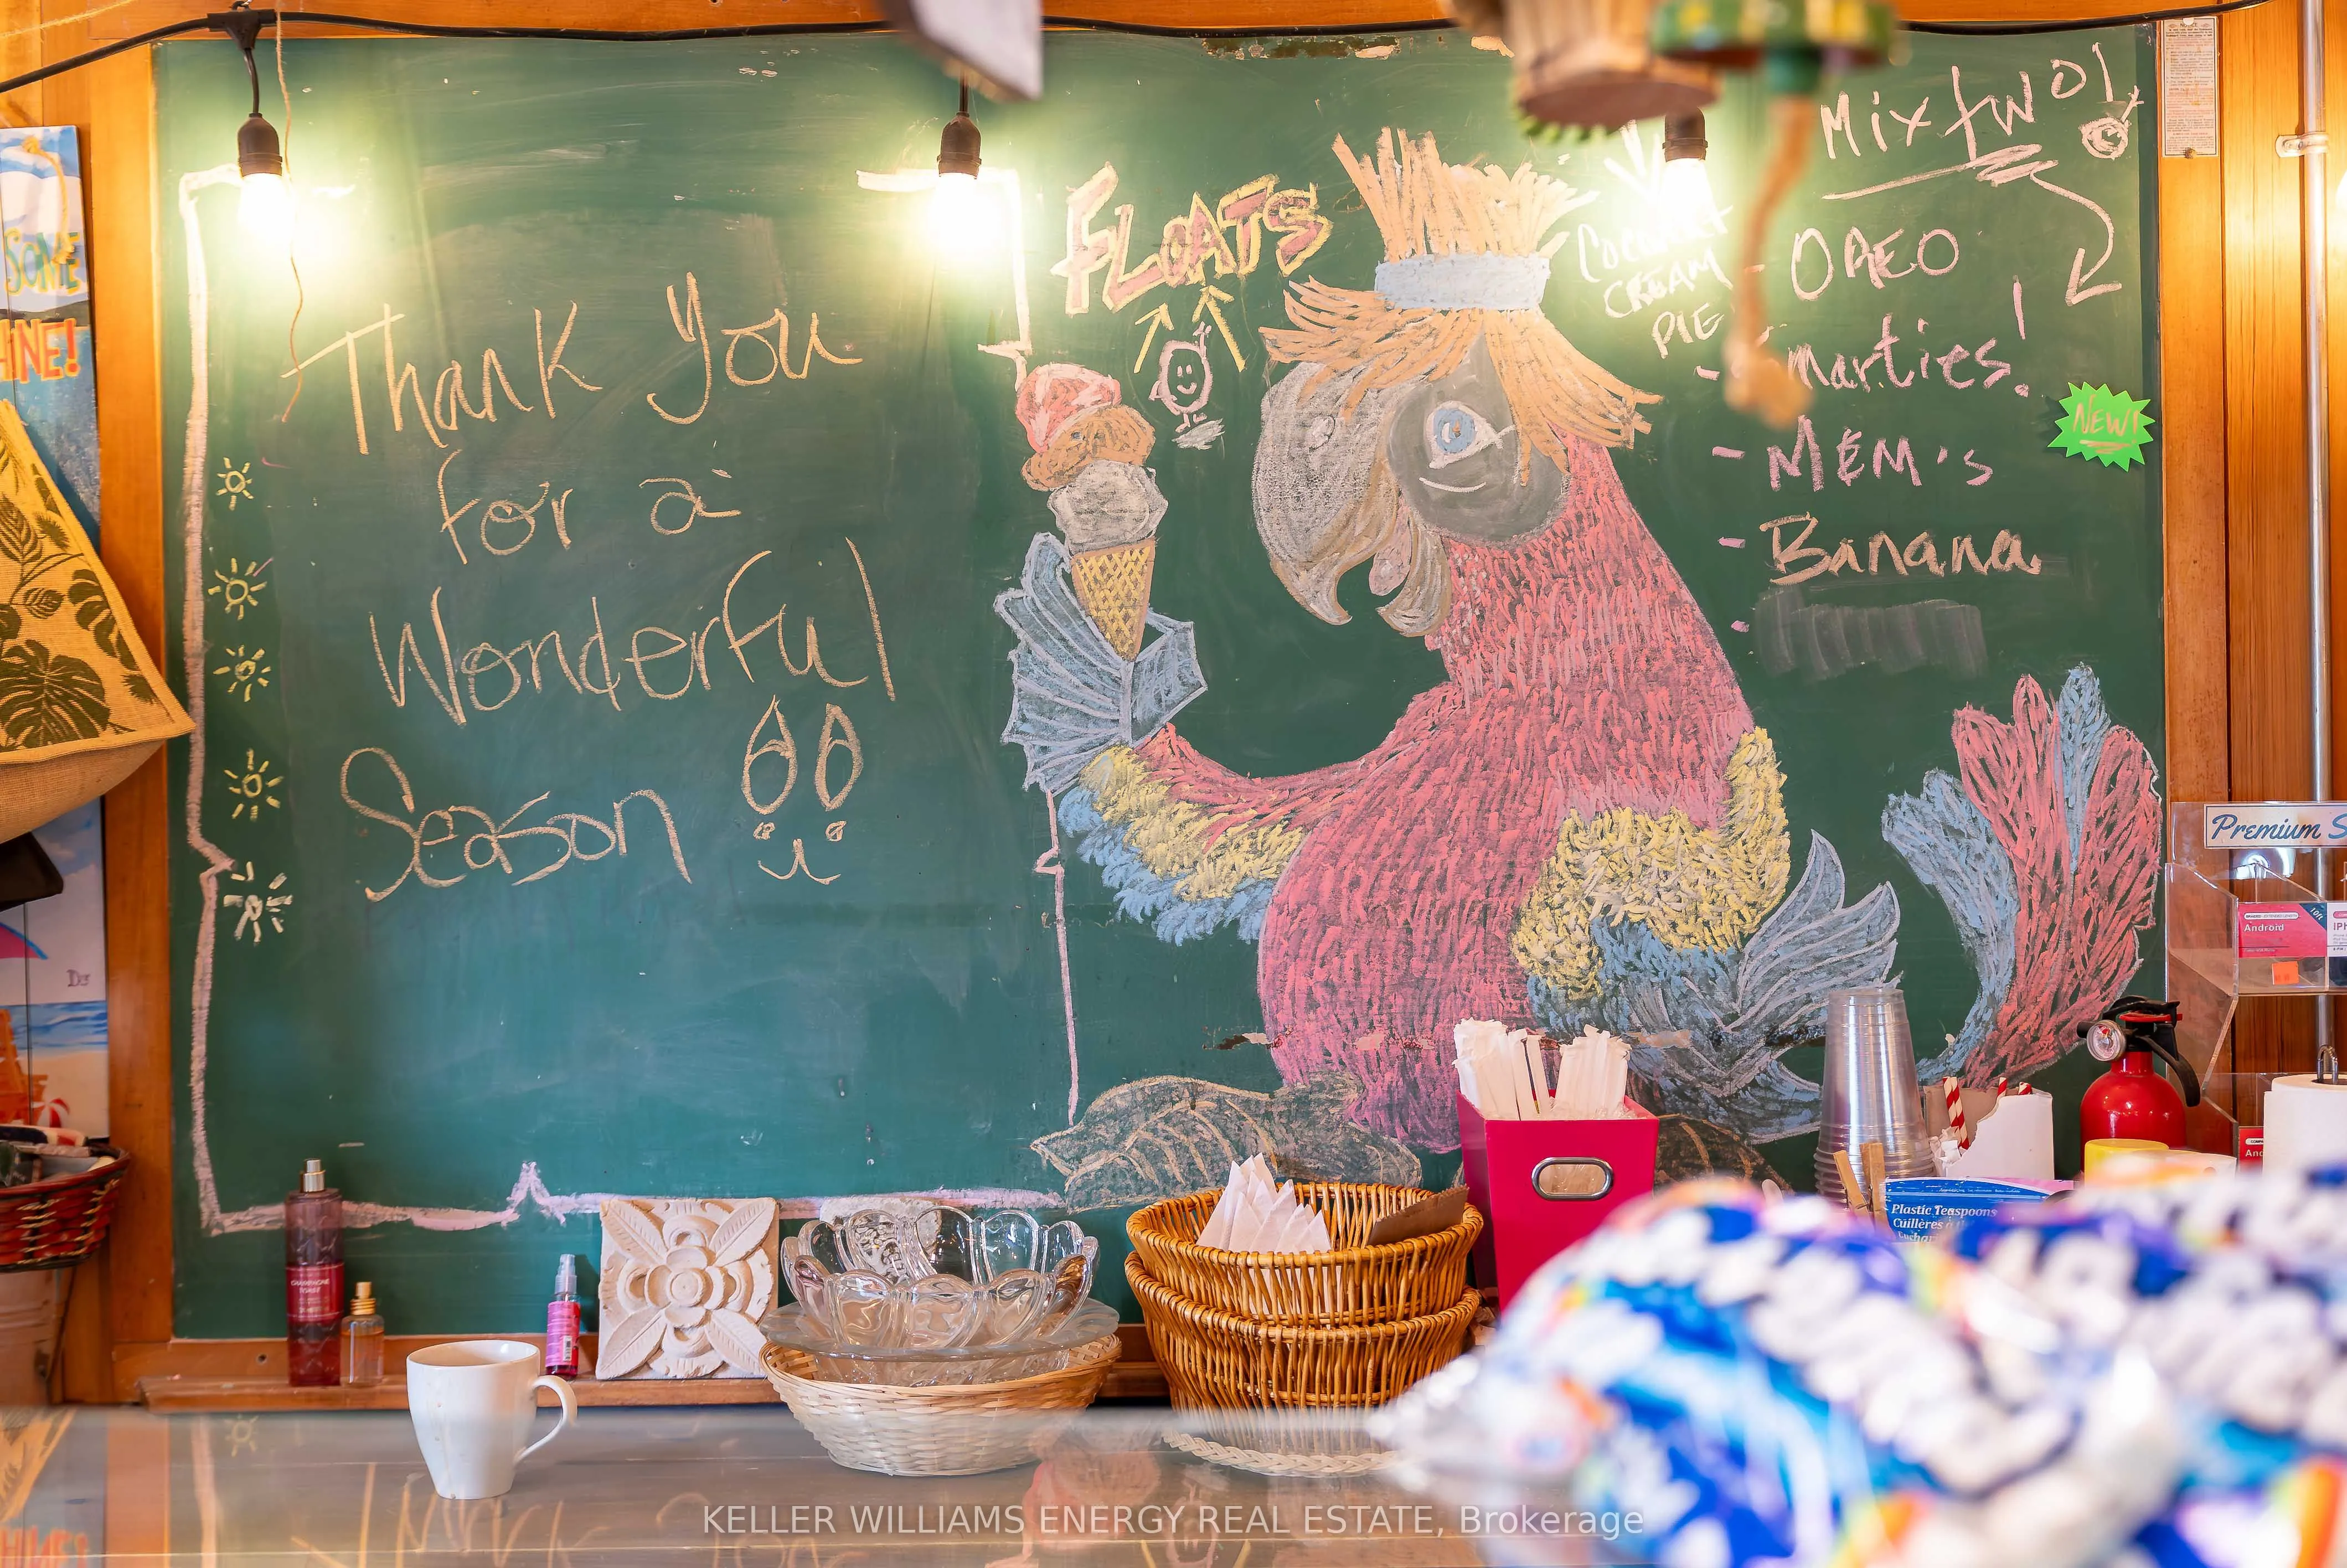 Thank You
for a
Wonderful
Season
FLOATS
COCONUT
CREAM
PIE
Mix two!
- OREO
- Smarties!
- M&M's
- Banana
NEW!
SOME
HINE!
Premium S
Android
IPH
CHAMPAGNE
TOAST
Plastic Teaspoons
Cuillères à
KELLER WILLIAMS ENERGY REAL ESTATE, Brokerage